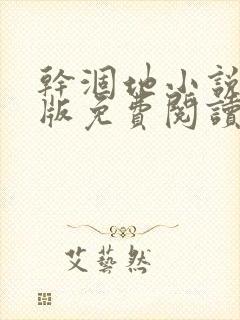 幹涸地小說
版免費閱讀
艾藝然